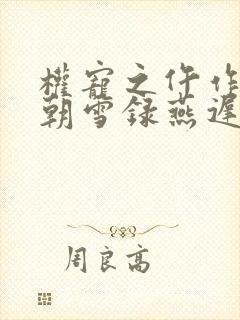 權寵之仵作
朝雪録燕遲
周良高